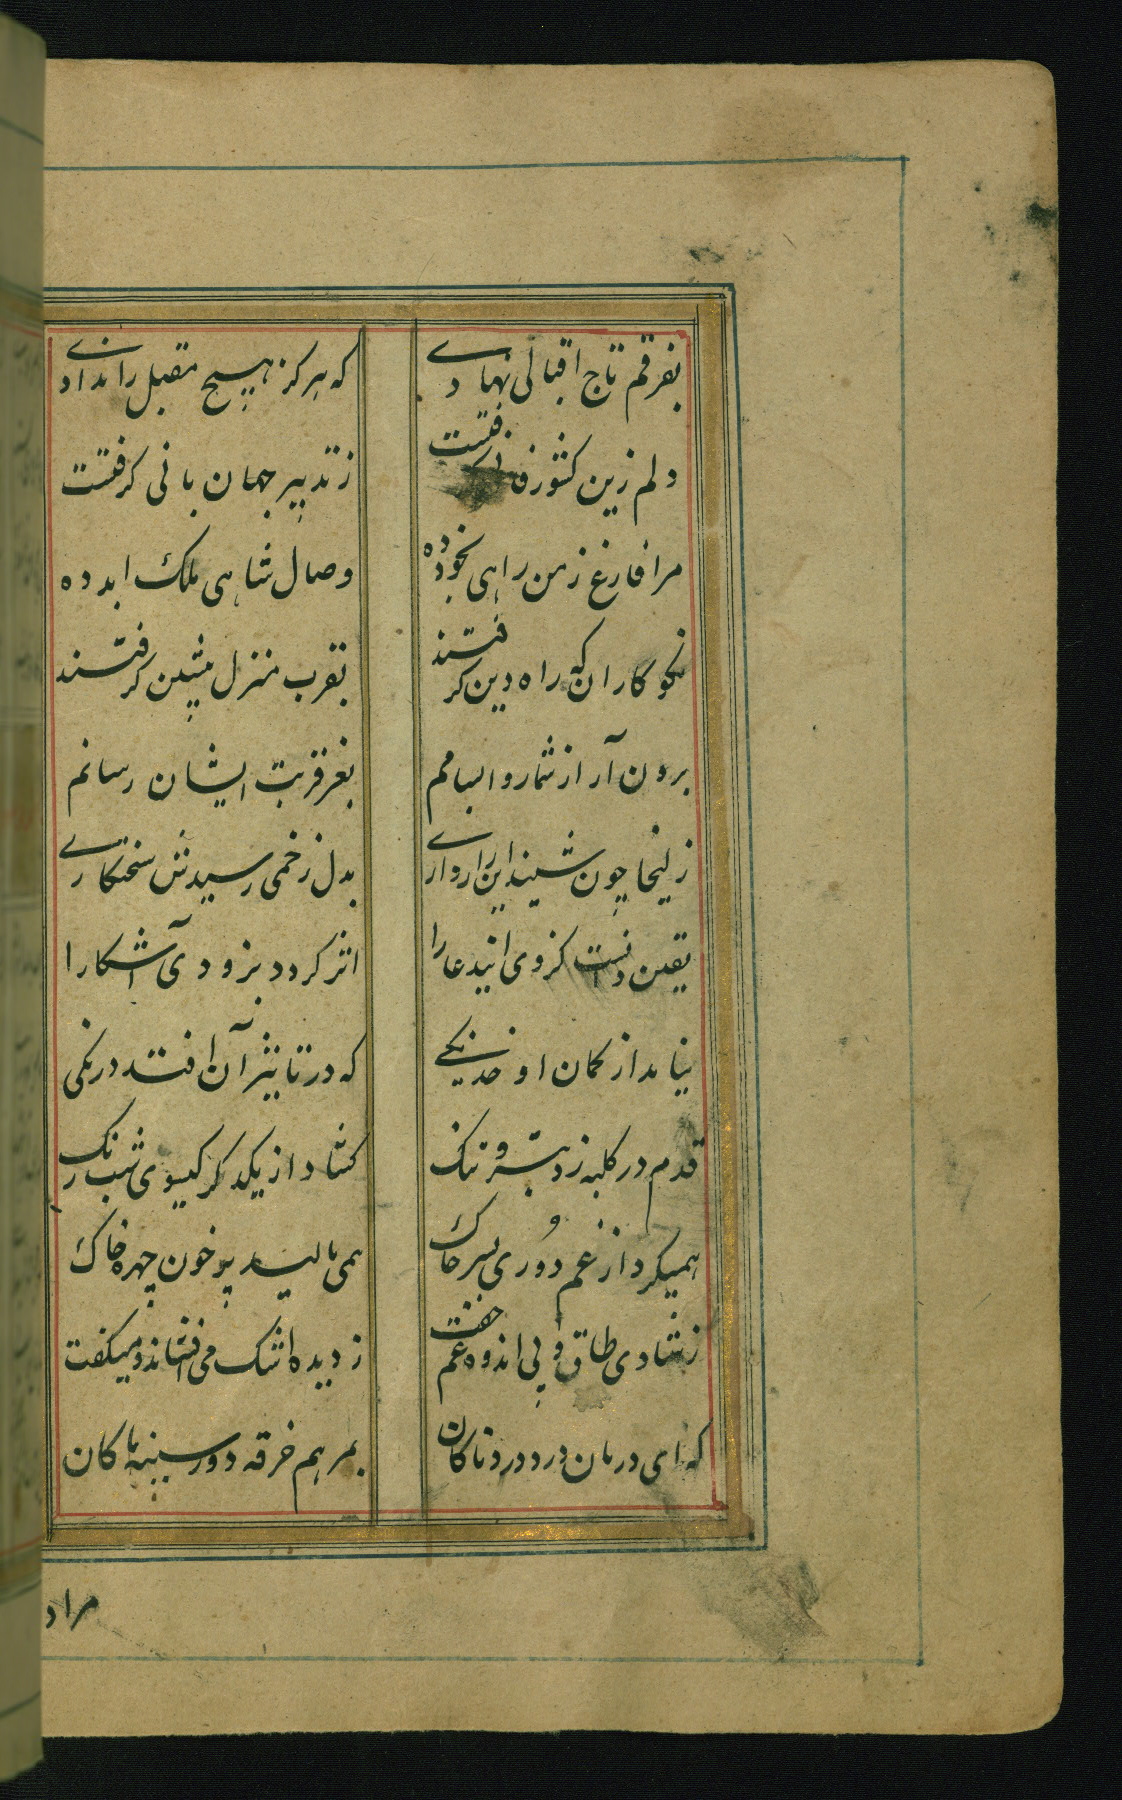 بفرقم تاج اقبالی نهادی که هرکز هیچ مقبل را ندادی
دلم زین کشور فانی کرفتست ز تدبیر جهان بانی کرفتست
مرا فارغ ز من راهی بخود ده وصال شاهی ملک ابد ده
نکو کاران که راه دین کرفتند بقرب منزل پیشین کرفتند
برون آر از شمار واپسانم بعز قربت ایشان رسانم
زلیخا چون شنید این زار واری بدل زخمی رسیدش سختکاری
یقین دانست کز وی این دعا را اثر کردد بزودی آشکارا
نیاید از کمان او خدنکی که در تاثیر آن افتد درنکی
قدم در کلبه زد بس تنک کشاد از یکدکر کیسوی شب رنک
همیکرد از غم دوری بسر خاک همی مالید پر خون چهره خاک
ز شادی طاق و پی اندوه و غم جفت ز دیده اشک می افشاند و میکفت
که ای درمان درد دردناکان بمرهم خرقه دوز سینه پاکان
مرا د